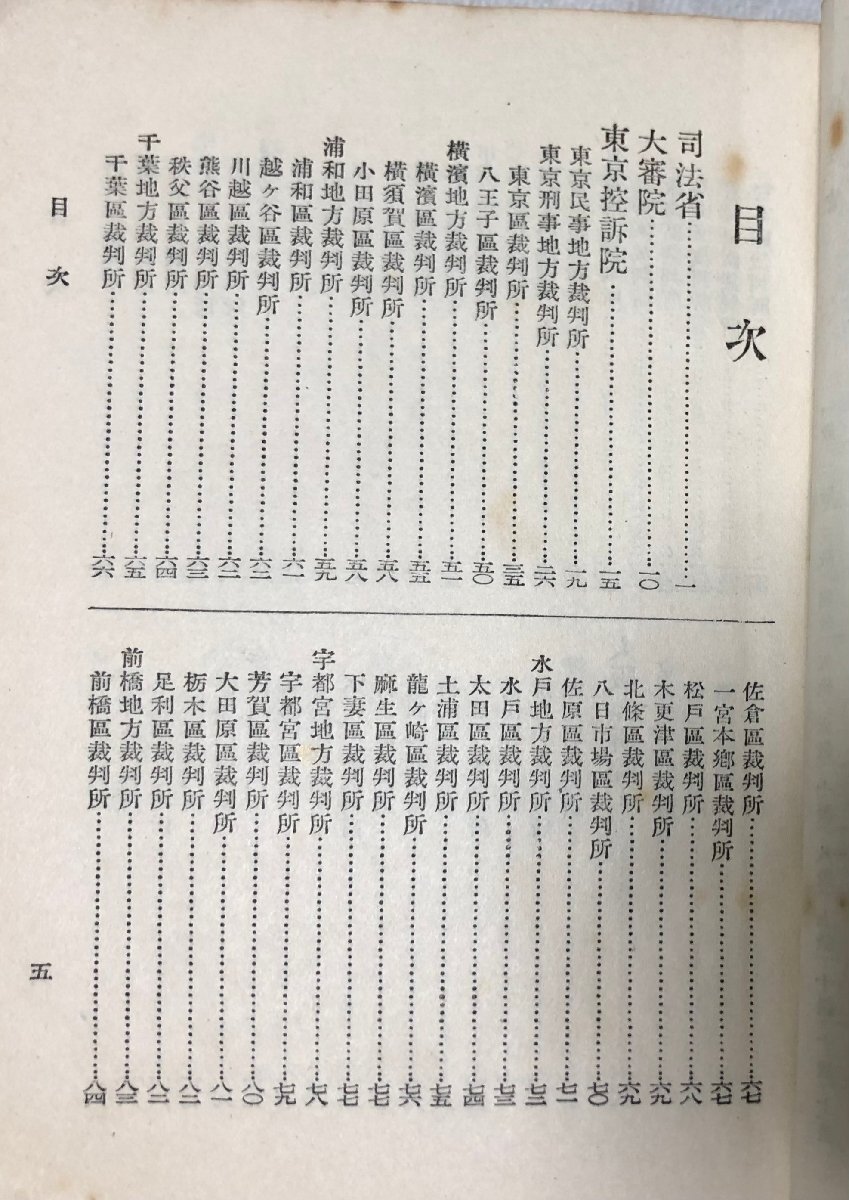 目次
司法省……一
大審院……一〇
東京控訴院……一五
東京民事地方裁判所……一九
東京刑事地方裁判所……二六
東京區裁判所……三五
八王子區裁判所……五〇
橫濱地方裁判所……五一
橫濱區裁判所……五五
橫須賀區裁判所……五八
小田原區裁判所……五八
浦和地方裁判所……五九
浦和區裁判所……六一
越ヶ谷區裁判所……六二
川越區裁判所……六二
熊谷區裁判所……六三
秩父區裁判所……六四
千葉地方裁判所……六五
千葉區裁判所……六六
佐倉區裁判所……六七
一宮本鄉區裁判所……六七
松戸區裁判所……六八
木更津區裁判所……六九
北條區裁判所……六九
八日市場區裁判所……七〇
佐原區裁判所……七一
水戸地方裁判所……七二
水戸區裁判所……七三
太田區裁判所……七四
土浦區裁判所……七五
龍ヶ崎區裁判所……七六
麻生區裁判所……七七
下妻區裁判所……七七
宇都宮地方裁判所……七八
宇都宮區裁判所……七九
芳賀區裁判所……八〇
大田原區裁判所……八一
栃木區裁判所……八二
足利區裁判所……八二
前橋地方裁判所……八三
前橋區裁判所……八四
目次
五